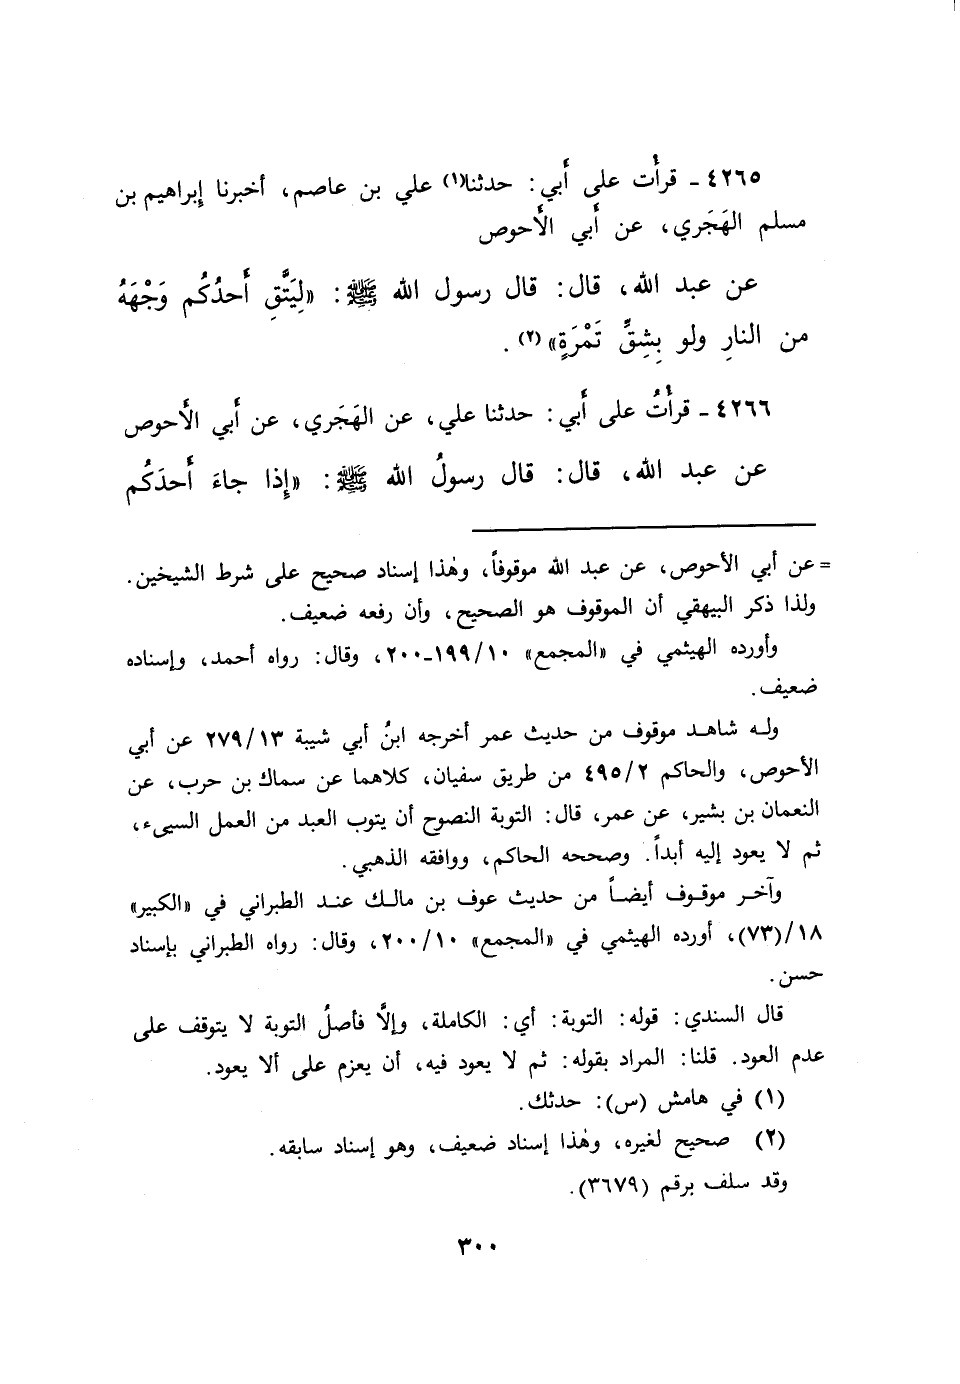 ٤٢٦٥ - قرأْت على أَبي: حدثنا(١) علي بن عاصم، أخبرنا إِبراهيم بن
مسلم الهَجَري، عن أَبي الأَحوص
عن عبد الله، قال: قال رسول الله ﷺ: «لِيَتَّقِ أَحدُكُم وَجْهَهُ
من النارِ ولو بِشِقِّ تَمْرَةٍ»(٢).
٤٢٦٦ - قرأْتُ على أَبي: حدثنا علي، عن الهَجَري، عن أَبي الأَحوص
عن عبد الله، قال: قال رسولُ الله ﷺ: «إِذا جاءَ أَحدَكُم
= عن أبي الأحوص، عن عبد الله موقوفاً، وهٰذا إسناد صحيح على شرط الشيخين.
ولذا ذكر البيهقي أن الموقوف هو الصحيح، وأن رفعه ضعيف.
وأورده الهيثمي في «المجمع» ١٩٩/١٠-٢٠٠، وقال: رواه أحمد، وإسناده
ضعيف.
وله شاهد موقوف من حديث عمر أخرجه ابنُ أبي شيبة ٢٧٩/١٣ عن أبي
الأحوص، والحاكم ٤٩٥/٢ من طريق سفيان، كلاهما عن سماك بن حرب، عن
النعمان بن بشير، عن عمر، قال: التوبة النصوح أن يتوب العبد من العمل السيىء،
ثم لا يعود إليه أبداً. وصححه الحاكم، ووافقه الذهبي.
وآخر موقوف أيضاً من حديث عوف بن مالك عند الطبراني في «الكبير»
١٨/(٧٣)، أورده الهيثمي في «المجمع» ٢٠٠/١٠، وقال: رواه الطبراني بإسناد
حسن.
قال السندي: قوله: التوبة: أي: الكاملة، وإلَّا فأصلُ التوبة لا يتوقف على
عدم العود. قلنا: المراد بقوله: ثم لا يعود فيه، أن يعزم على ألا يعود.
(١) في هامش (س): حدثك.
(٢) صحيح لغيره، وهٰذا إسناد ضعيف، وهو إسناد سابقه.
وقد سلف برقم (٣٦٧٩).
٣٠٠